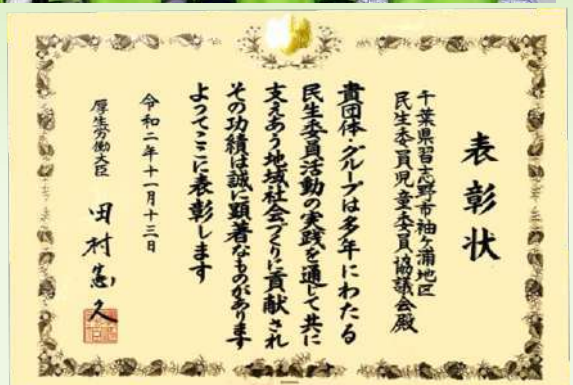 表彰状
千葉県習志野市袖ケ浦地区
民生委員児童委員協議会殿
貴団体・グループは多年にわたる
民生委員活動の実践を通じて共に
支えあう地域社会づくりに貢献され
その功績は誠に顕著なものがあります
よってここに表彰します
令和二年十一月十三日
厚生労働大臣
田村憲久